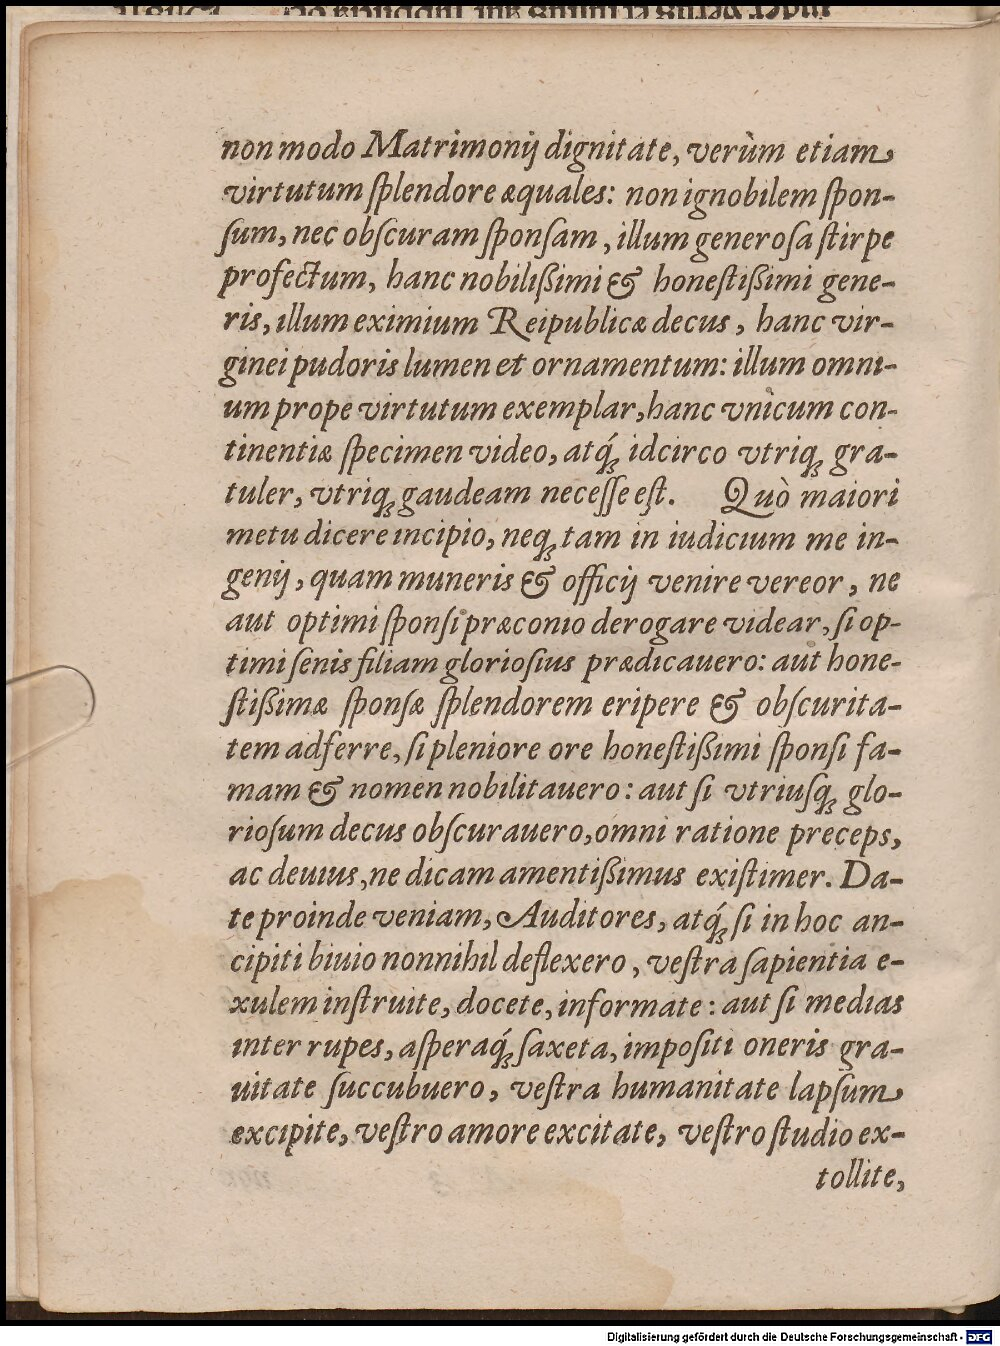 non modo Matrimonij dignitate, verùm etiam
virtutum ſplendore æquales: non ignobilem ſpon-
ſum, nec obſcuram ſponſam, illum generoſa ſtirpe
profectum, hanc nobilißimi & honeſtißimi gene-
ris, illum eximium Reipublicæ decus, hanc vir-
ginei pudoris lumen et ornamentum: illum omni-
um prope virtutum exemplar, hanc vnicum con-
tinentiæ ſpecimen video, atq́ꝫ idcirco vtriqꝫ gra-
tuler, vtriqꝫ gaudeam neceſſe eſt. Quò maiori
metu dicere incipio, neqꝫ tam in iudicium me in-
genij, quam muneris & officij venire vereor, ne
aut optimi ſponſi præconio derogare videar, ſi op-
timi ſenis filiam glorioſius prædicauero: aut hone-
ſtißimæ ſponſæ ſplendorem eripere & obſcurita-
tem adferre, ſi pleniore ore honeſtißimi ſponſi fa-
mam & nomen nobilitauero: aut ſi vtriuſqꝫ glo-
rioſum decus obſcurauero, omni ratione preceps,
ac deuius, ne dicam amentißimus exiſtimer. Da-
te proinde veniam, Auditores, atq́ꝫ ſi in hoc an-
cipiti biuio nonnihil deflexero, veſtra ſapientia e-
xulem inſtruite, docete, informate: aut ſi medias
inter rupes, aſperaq́ꝫ ſaxeta, impoſiti oneris gra-
uitate ſuccubuero, veſtra humanitate lapſum
excipite, veſtro amore excitate, veſtro ſtudio ex-
tollite,
Digitalisierung gefördert durch die Deutsche Forschungsgemeinschaft - DFG